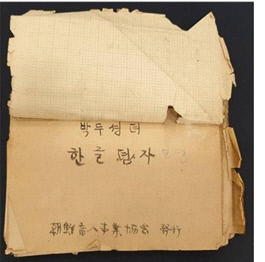 박두성 저
한글 점자
朝鮮盲人事業協会 発行